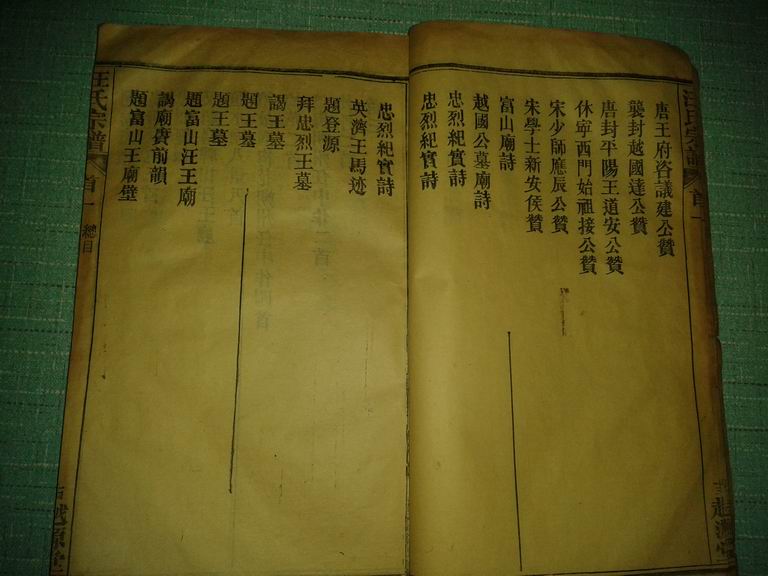 唐王府咨議建公贊
襲封越國達公贊
唐封平陽王道安公贊
休寜西門始祖接公贊
宋少師應辰公贊
宋學士新安侯贊
富山廟詩
越國公墓廟詩
忠烈紀實詩
忠烈紀實詩
忠烈紀實詩
英濟王馬迹
題登源
拜忠烈王墓
謁王墓
題王墓
題王墓
題富山汪王廟
謁廟賡前韻
題富山王廟壁
汪氏宗譜
首一
總目
越源堂